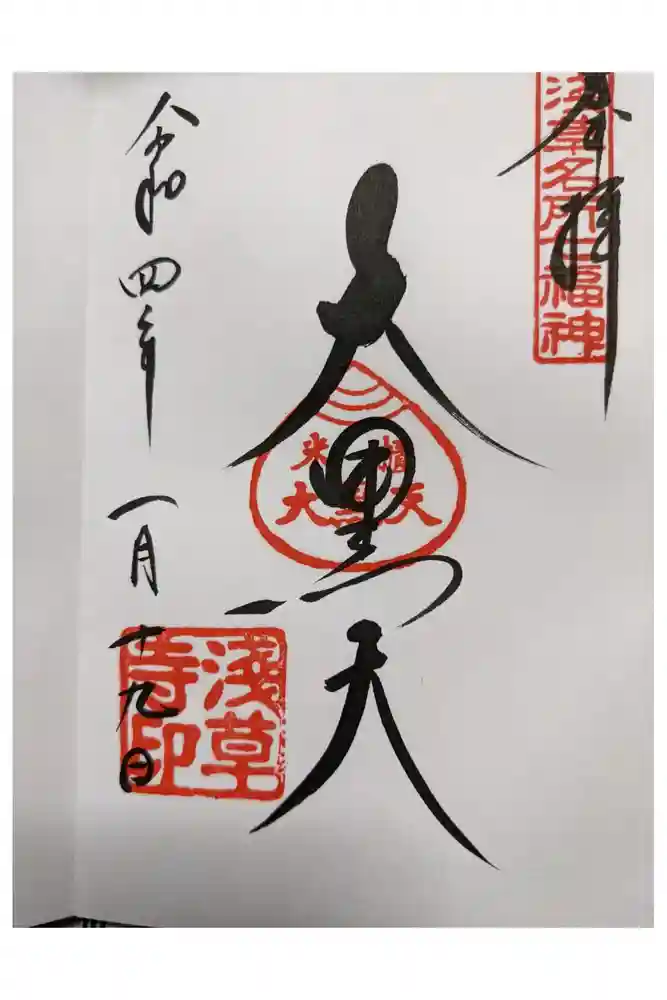 奉拝
浅草名所七福神
大黒天
米櫃
大黒天
令和四年
一月
十九日
淺草
寺印